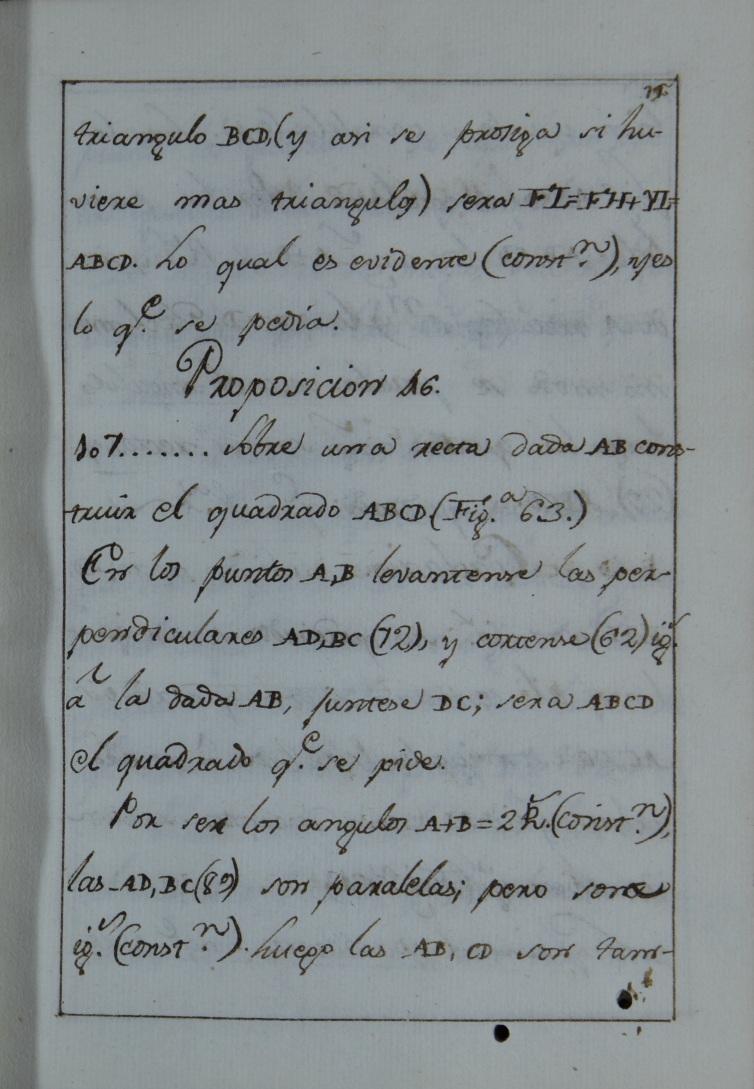 triangulo BCD, (y asi se prosiga si hu-
viere mas triangulos) sera FI=FH+YI=
ABCD. Lo qual es evidente (const.n), y es
lo q.e se pedia.
Proposicion 46.
107....... Sobre una recta dada AB cons-
truir el quadrado ABCD (Fig.a 63.)
En los puntos A,B levantense las per-
pendiculares AD,BC (72), y cortense (62) ig.s
a la dada AB, juntese DC; sera ABCD
el quadrado q.e se pide.
Por ser los angulos A+B=2R.s (const.n),
las AD,BC (89) son paralelas; pero son
ig.s (const.n). Luego las AB, CD son tam-